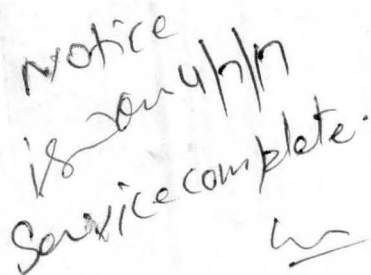 Notice
is on 4/7/17
Service complete.